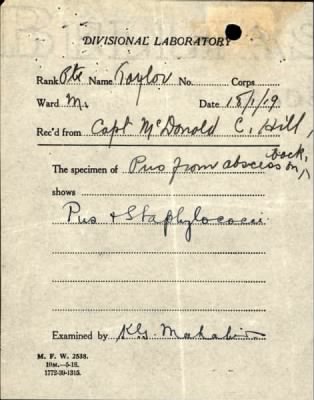 DIVISIONAL LABORATORY
Rank Pte Name Taylor No. Corps
Ward M. Date 18/1/19
Rec'd from Capt McDonald C. Hill,
The specimen of Pus from abscess on back,
shows
Pus & Staphylococci
Examined by K.G.
M. F. W. 2538.
10M.—5-18.
1772-19-1315.